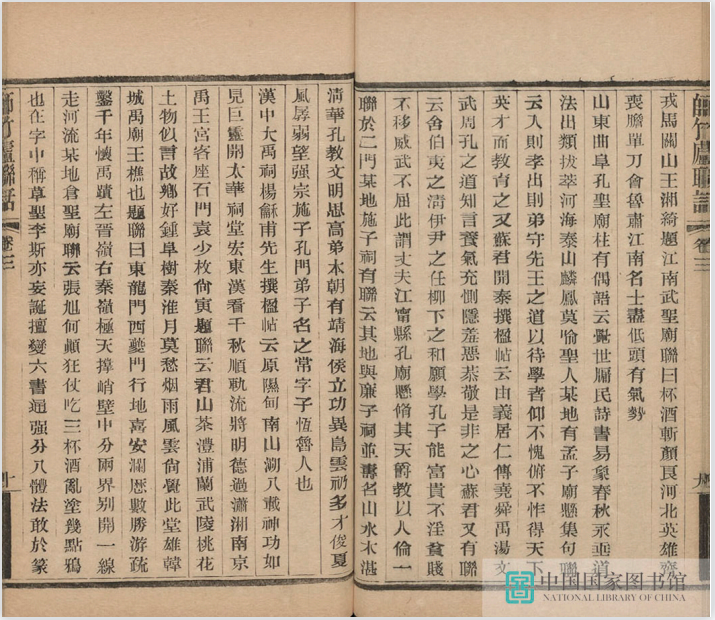 師竹廬聯話 卷三 九
戎馬關山王湘綺題江南武聖廟聯曰杯酒斬顏良河北英雄齊
喪膽單刀會魯肅江南名士盡低頭有氣勢
山東曲阜孔聖廟柱有偶語云覺世牖民詩書易象春秋永垂道
法出類拔萃河海泰山麟鳳莫喻聖人某地有孟子廟懸集句聯
云入則孝出則弟守先王之道以待學者仰不愧俯不怍得天下
英才而教育之又蘇君開泰撰楹帖云由義居仁傳堯舜禹湯文
武周孔之道知言養氣充惻隱羞惡恭敬是非之心蘇君又有聯
云舍伯夷之清伊尹之任柳下之和願學孔子能富貴不淫貧賤
不移威武不屈此謂丈夫江甯縣孔廟懸脩其天爵教以人倫一
聯於二門某地施子祠有聯云其地與廉子祠並壽名山水木湛
清華孔教文明思高弟本朝有靖海侯立功異島雲礽多才俊夏
風孱弱望强宗施子孔門弟子名之常字子恆魯人也
漢中大禹祠楊龢甫先生撰楹帖云原隰甸南山瀰八載神功如
見巨靈開太華祠堂宏東漢看千秋順軌流將明德過瀟湘南京
禹王宮客座石門袁少枚尙寅題聯云君山茶澧浦蘭武陵桃花
土物似言故鄉好鍾阜樹秦淮月莫愁烟雨風雲尙覺此堂雄韓
城禹廟王樵也題聯曰東龍門西夔門行地喜安瀾歷數勝游疏
鑿千年懷禹蹟左晉嶺右秦嶺極天撑峭壁中分兩界别開一線
走河流某地倉聖廟聯云張旭何顚狂仗吃三杯酒亂塗幾點鴉
也在字中稱草聖李斯亦妄誕擅變六書遁强分八體法敢於篆
師竹廬聯話 卷三 十
中国国家图书馆
NATIONAL LIBRARY OF CHINA